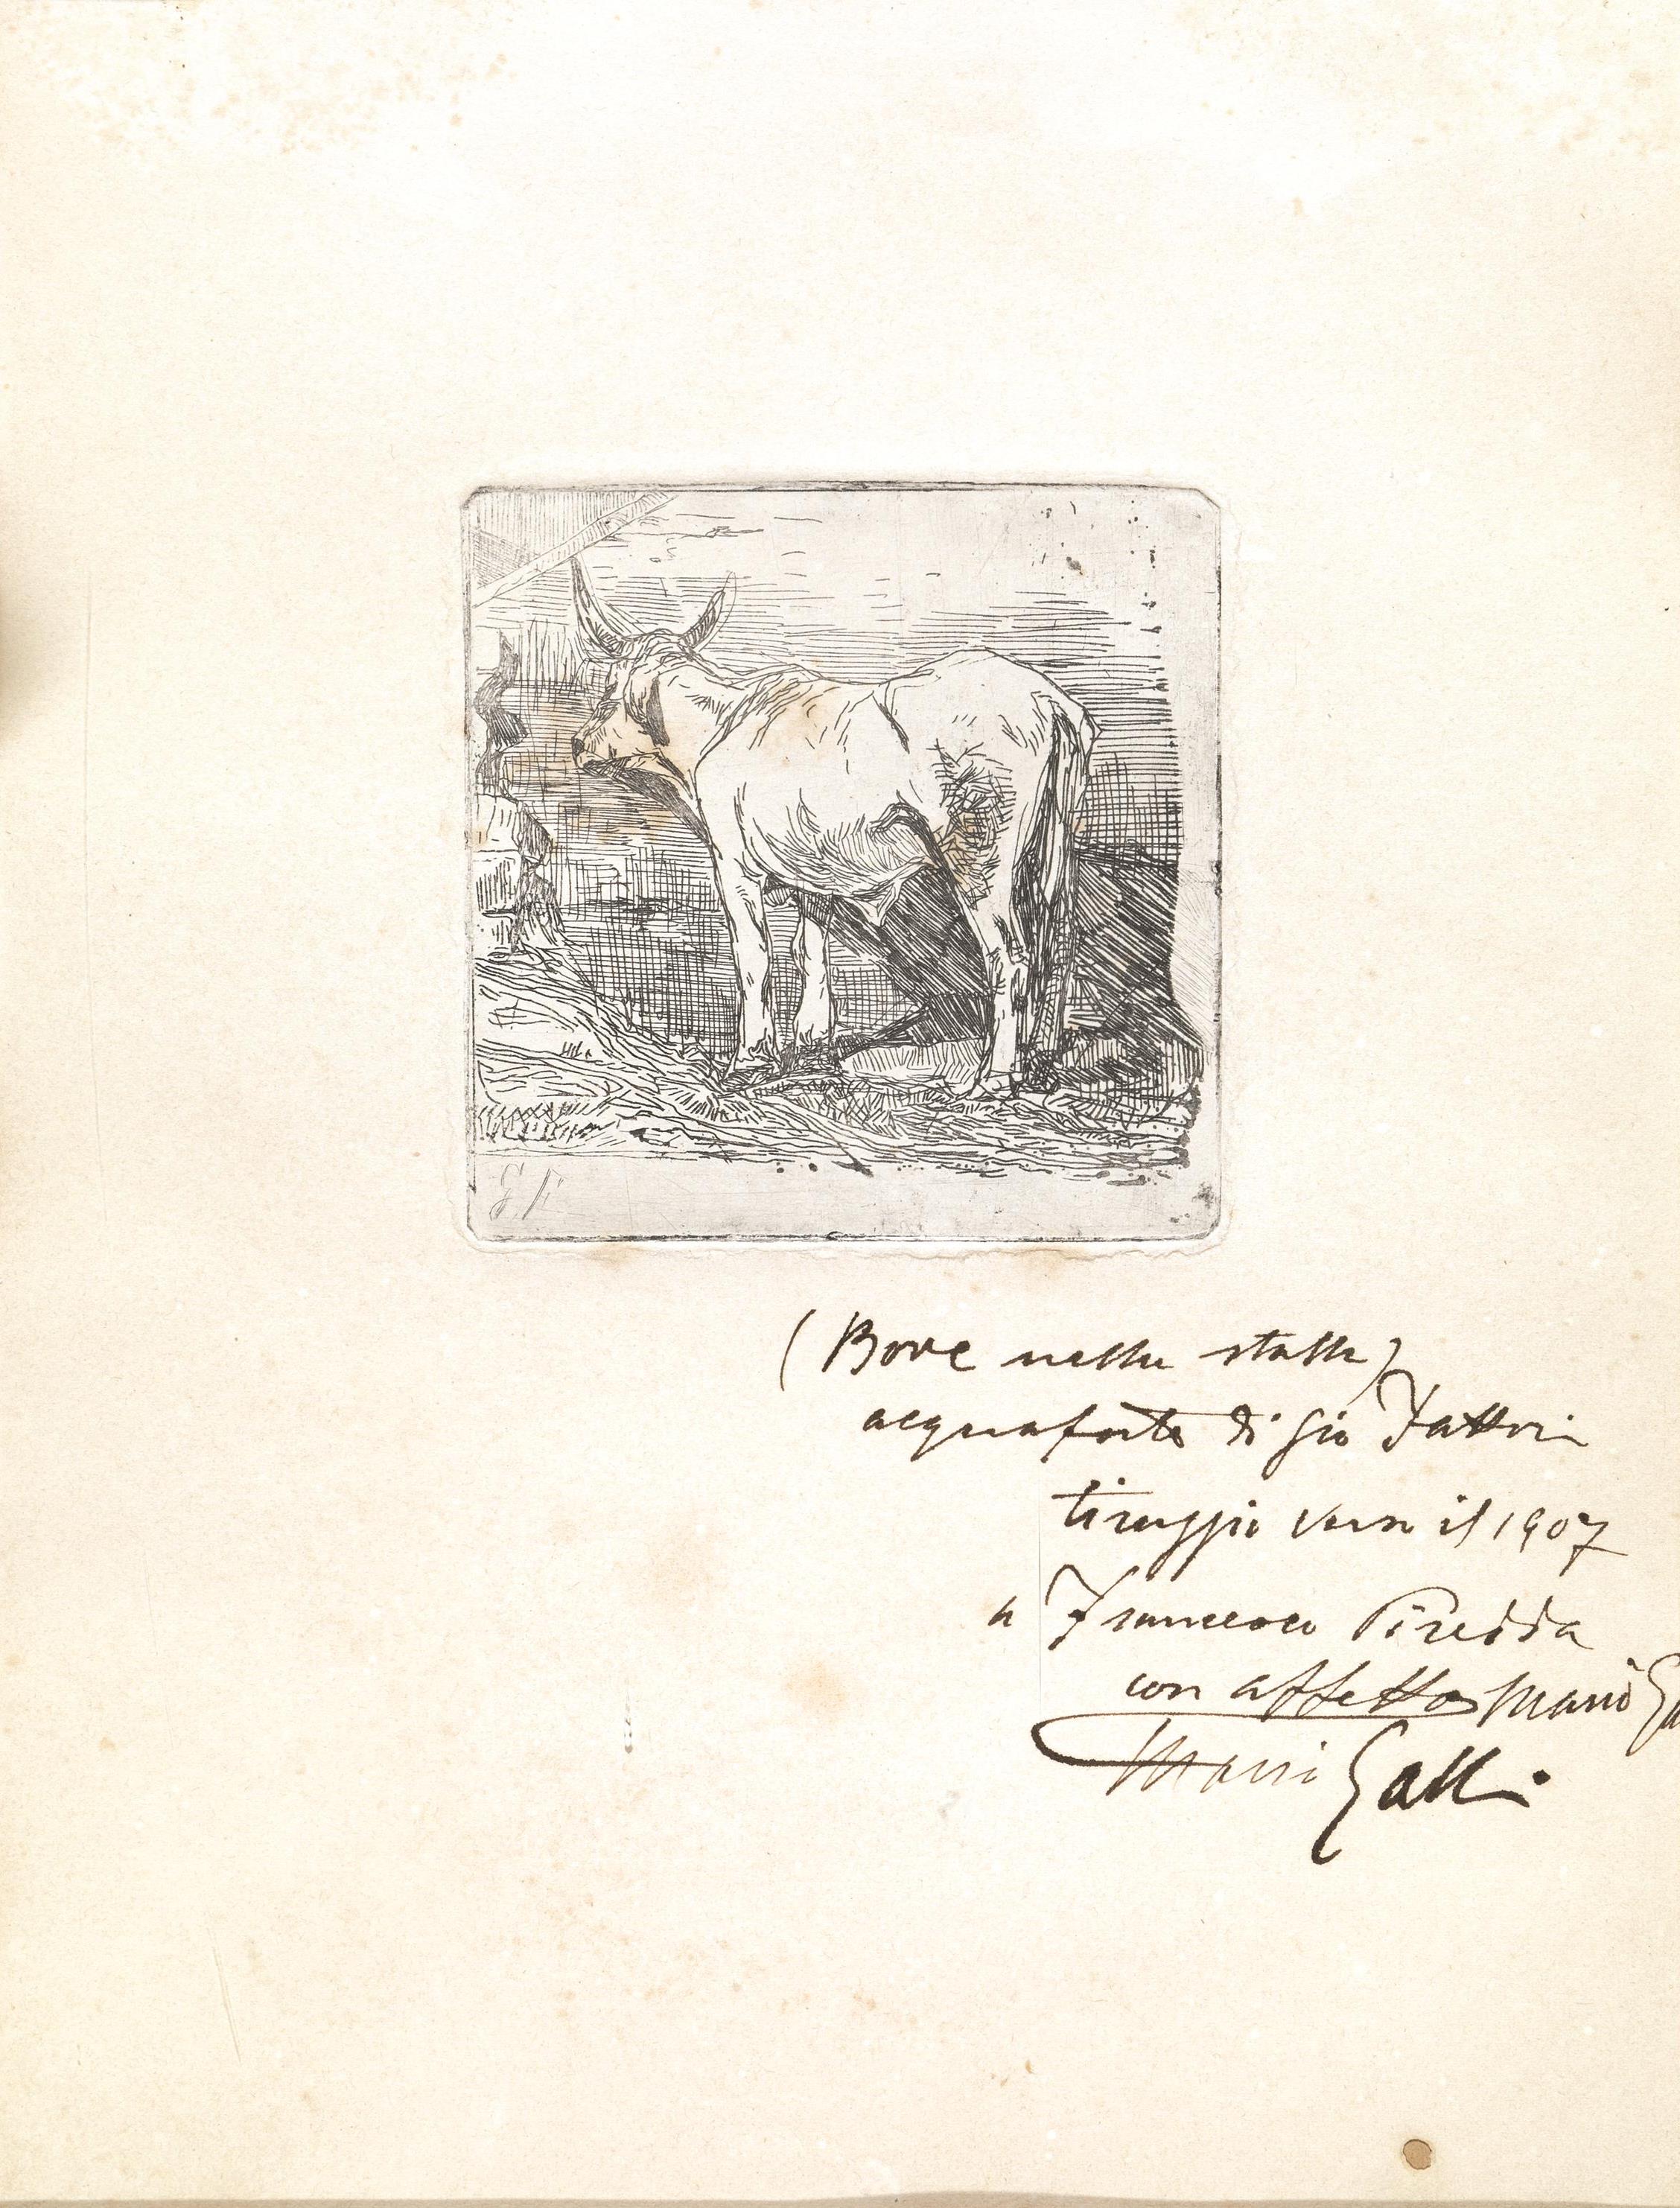 G. F.
(Bove nella stalla)
acquaforte di Gio Fattori
tiraggio verso il 1907
a Francesco Piredda
con affetto Mario Ga
Mario Galli.